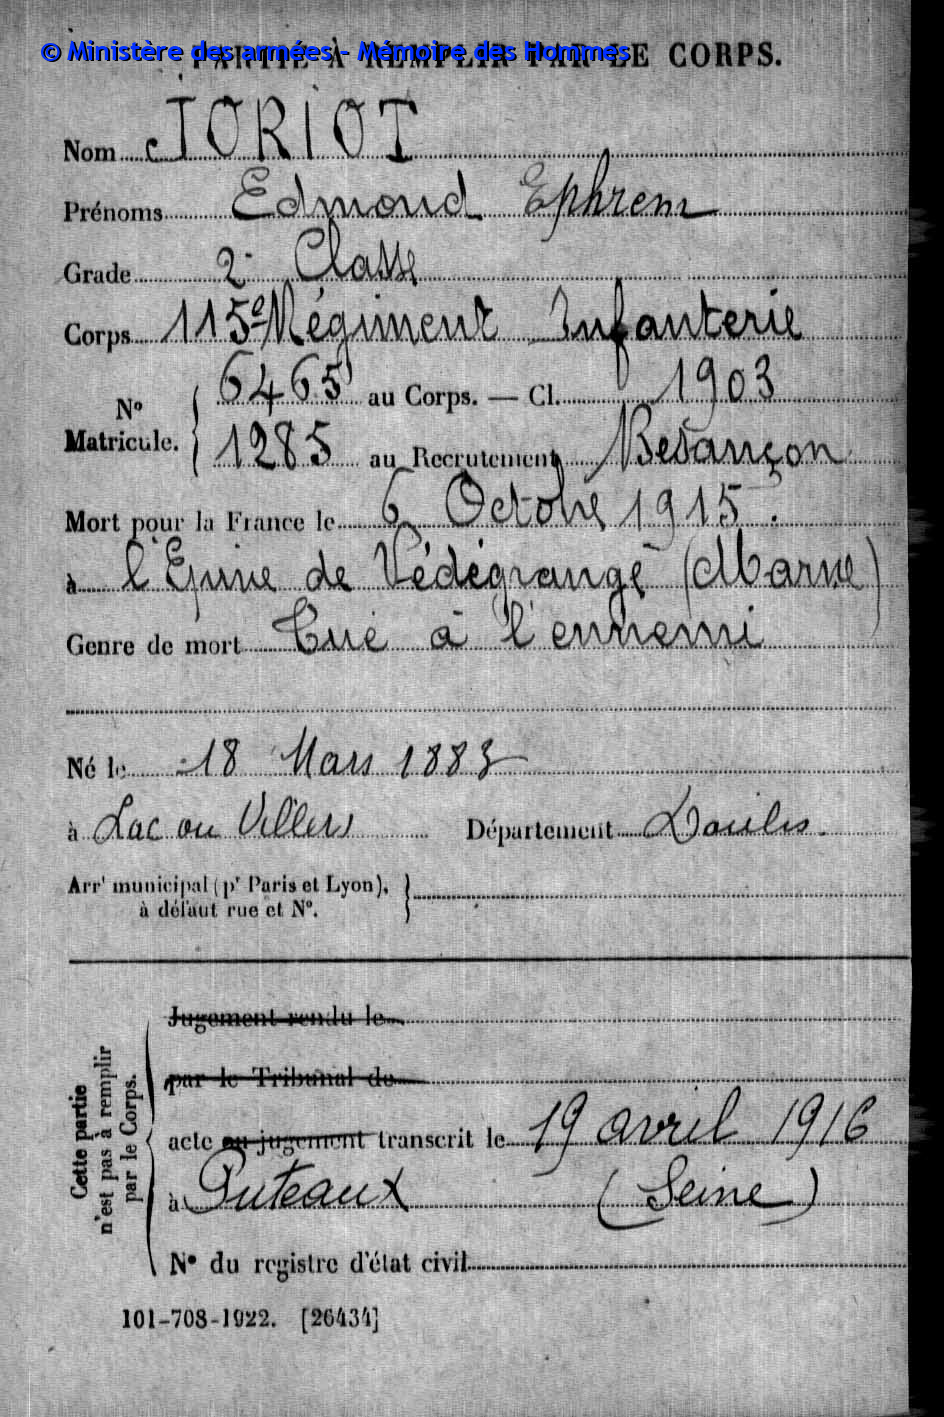 © Ministère des armées - Mémoire des Hommes
PARTIE À REMPLIR PAR LE CORPS.
Nom JORIOT
Prénoms Edmond Ephrem
Grade 2e Classe
Corps 115e Régiment Infanterie
No Matricule. { 6465 au Corps. — Cl. 1903
1285 au Recrutement Besançon
Mort pour la France le 6 Octobre 1915.
à l'Epine de Védégrange (Marne)
Genre de mort Tué à l'ennemi
Né le 18 Mars 1883
à Lac ou Villers Département Doubs.
Arrt municipal (pr Paris et Lyon), à défaut rue et No. }
Cette partie n'est pas à remplir par le Corps.
Jugement rendu le
par le Tribunal de
acte ou jugement transcrit le 19 avril 1916
à Puteaux (Seine)
No du registre d'état civil
101-708-1922. [26434]